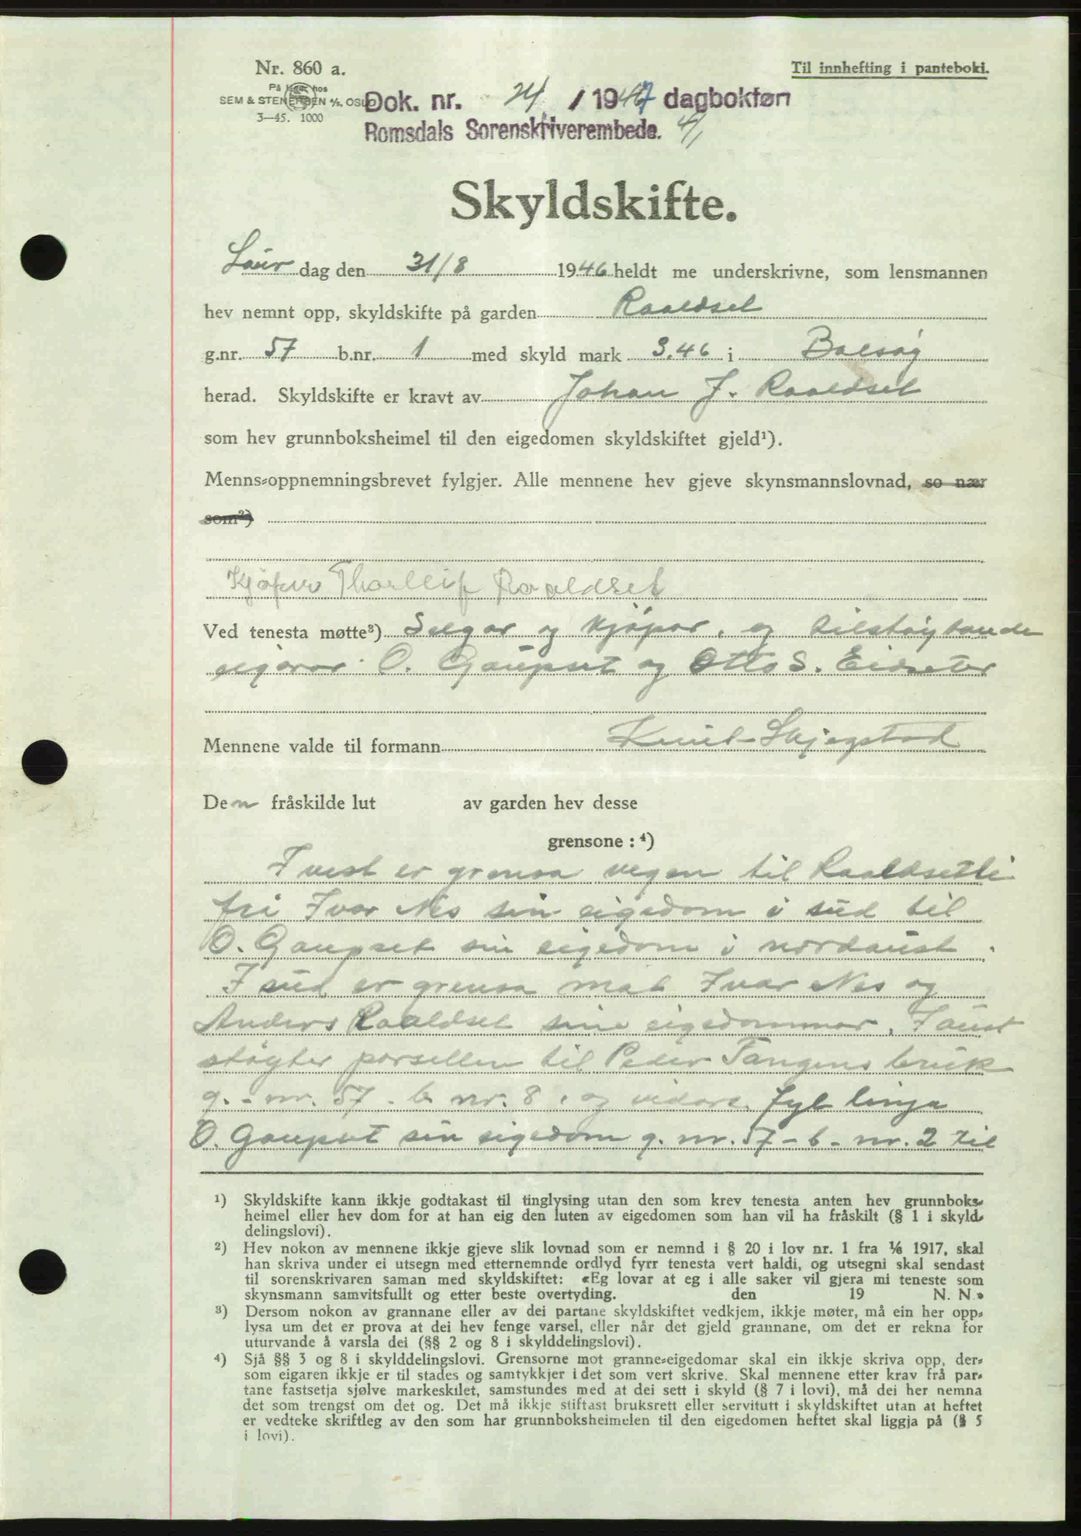 Nr. 860 a.
Til innhefting i panteboki.
På lager hos
SEM & STENERSEN A/S, OSLO
3—45. 1000
Dok. nr. 24 / 1947 dagboktøn
Romsdals Sorenskriverembede. 4/1
Skyldskifte.
Laur dag den 31/8 1946 heldt me underskrivne, som lensmannen
hev nemnt opp, skyldskifte på garden Raaldset
g.nr. 57 b.nr. 1 med skyld mark 3.46 i Bolsøy
herad. Skyldskifte er kravt av Johan J. Raaldset
som hev grunnboksheimel til den eigedomen skyldskiftet gjeld¹).
Menns-oppnemningsbrevet fylgjer. Alle mennene hev gjeve skynsmannslovnad, so nær
som²)
Kjøper Thorleif Raaldset
Ved tenesta møtte³) Selgar og kjøpar, og tilstøytande
eigarar O. Gaupset og Otto S. Eidseter
Mennene valde til formann Knut Skjegstad
Den fråskilde lut av garden hev desse
grensone : ⁴)
I vest er grensa vegen til Raaldsetli
frå Ivar Nes sin eigedom i sud til
O. Gaupset sin eigedom i nordaust.
I sud er grensa mot Ivar Nes og
Anders Raaldset sine eigedommar. I aust
støyter parsellen til Peder Tangens bruk
g. - nr. 57 - b. nr. 8, og vidare fyl linja
O. Gaupset sin eigedom g. nr. 57 - b - nr. 2 til
¹) Skyldskifte kann ikkje godtakast til tinglysing utan den som krev tenesta anten hev grunnboks-
heimel eller hev dom for at han eig den luten av eigedomen som han vil ha fråskilt (§ 1 i skyld-
delingslovi).
²) Hev nokon av mennene ikkje gjeve slik lovnad som er nemnd i § 20 i lov nr. 1 fra 1/6 1917, skal
han skriva under ei utsegn med etternemnde ordlyd fyrr tenesta vert haldi, og utsegni skal sendast
til sorenskrivaren saman med skyldskiftet: «Eg lovar at eg i alle saker vil gjera mi teneste som
skynsmann samvitsfullt og etter beste overtyding. den 19 N. N.»
³) Dersom nokon av grannane eller av dei partane skyldskiftet vedkjem, ikkje møter, må ein her opp-
lysa um det er prova at dei hev fenge varsel, eller når det gjeld grannane, om det er rekna for
uturvande å varsla dei (§§ 2 og 8 i skylddelingslovi).
⁴) Sjå §§ 3 og 8 i skylddelingslovi. Grensorne mot granne-eigedomar skal ein ikkje skriva opp, der-
som eigaren ikkje er til stades og samtykkjer i det som vert skrive. Skal mennene etter krav frå par-
tane fastsetja sjølve markeskilet, samstundes med at dei sett i skyld (§ 7 i lovi), må dei her nemna
det som trengst om det og. Det må ikkje stiftast bruksrett eller servitutt i skyldskiftet utan at heftet
er vedteke skriftleg av den som har grunnboksheimelen til den eigedomen heftet skal liggja på (§ 5
i lovi).